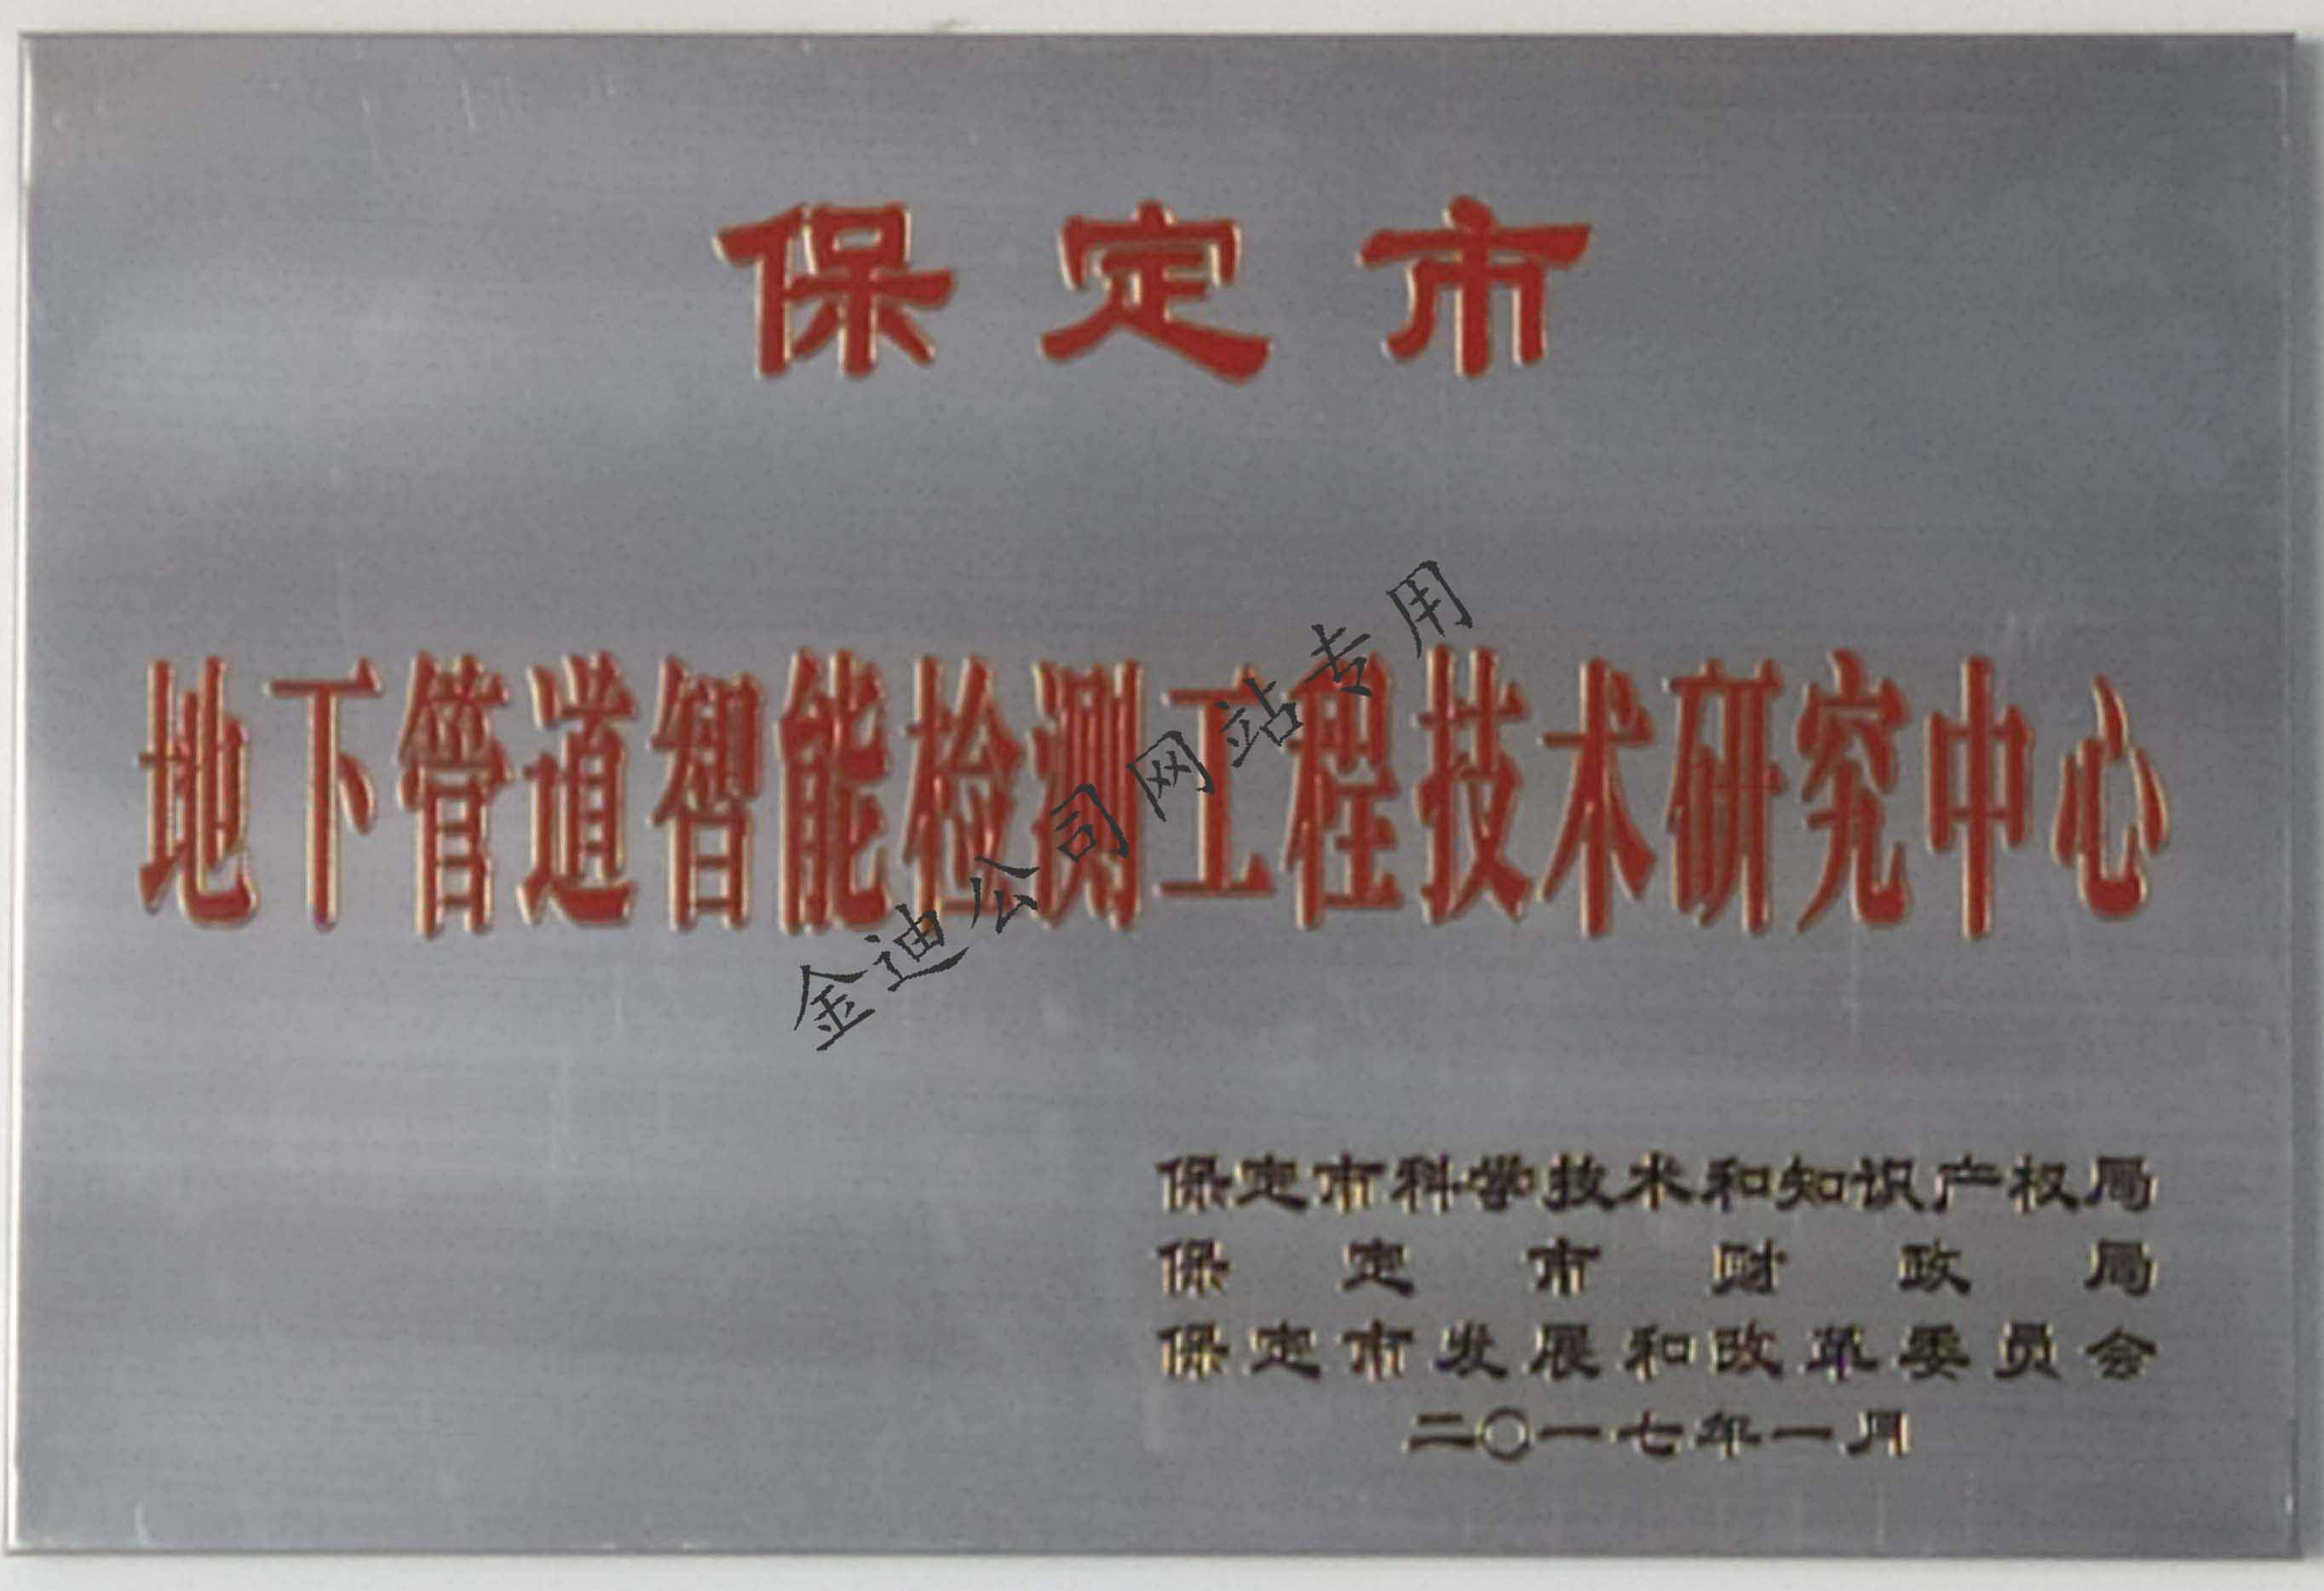 保定市
地下管道智能检测工程技术研究中心
金迪公司网站专用
保定市科学技术和知识产权局
保定市财政局
保定市发展和改革委员会
二〇一七年一月